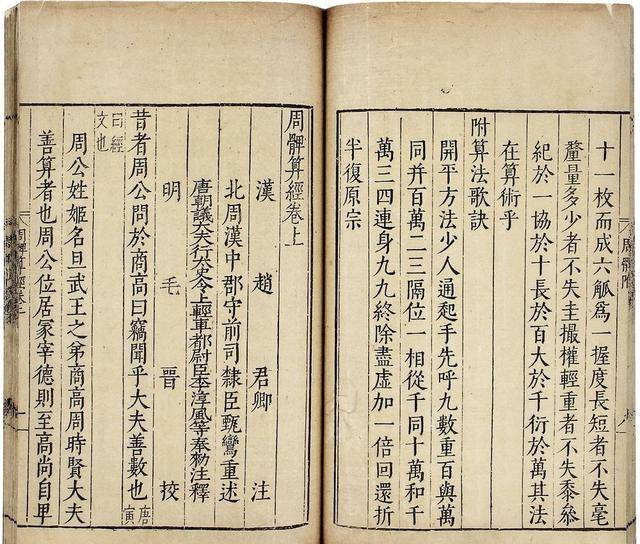 十一枚而成六觚為一握度長短者不失毫
釐量多少者不失圭撮權輕重者不失黍絫
紀於一協於十長於百大於千衍於萬其法
在算術乎
附算法歌訣
開平方法少人通起手先呼九數重百與萬
同并百萬二三隔位一相從千同十萬和千
萬三四連身九九終除盡虛加一倍回還折
半復原宗
周髀算經卷上
漢趙君卿注
北周漢中郡守前司隸臣甄鸞重述
唐朝議大夫行太史令上輕車都尉臣李淳風等奉勑注釋
明毛晉挍
昔者周公問於商高曰竊聞乎大夫善數也唐寅
曰經文也
周公姓姬名旦武王之弟商高周時賢大夫
善算者也周公位居冢宰德則至高尚自卑